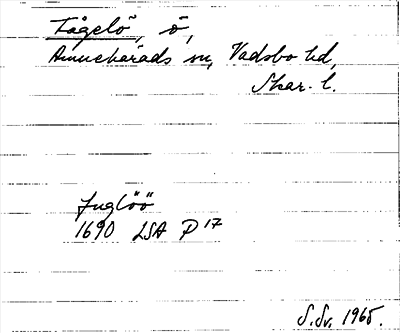 Fågelö, ö,
Amnehärads sn, Vadsbo hd,
Skar. l.
Fuglöö
1690 LSA P 17
S. Sv. 1965.